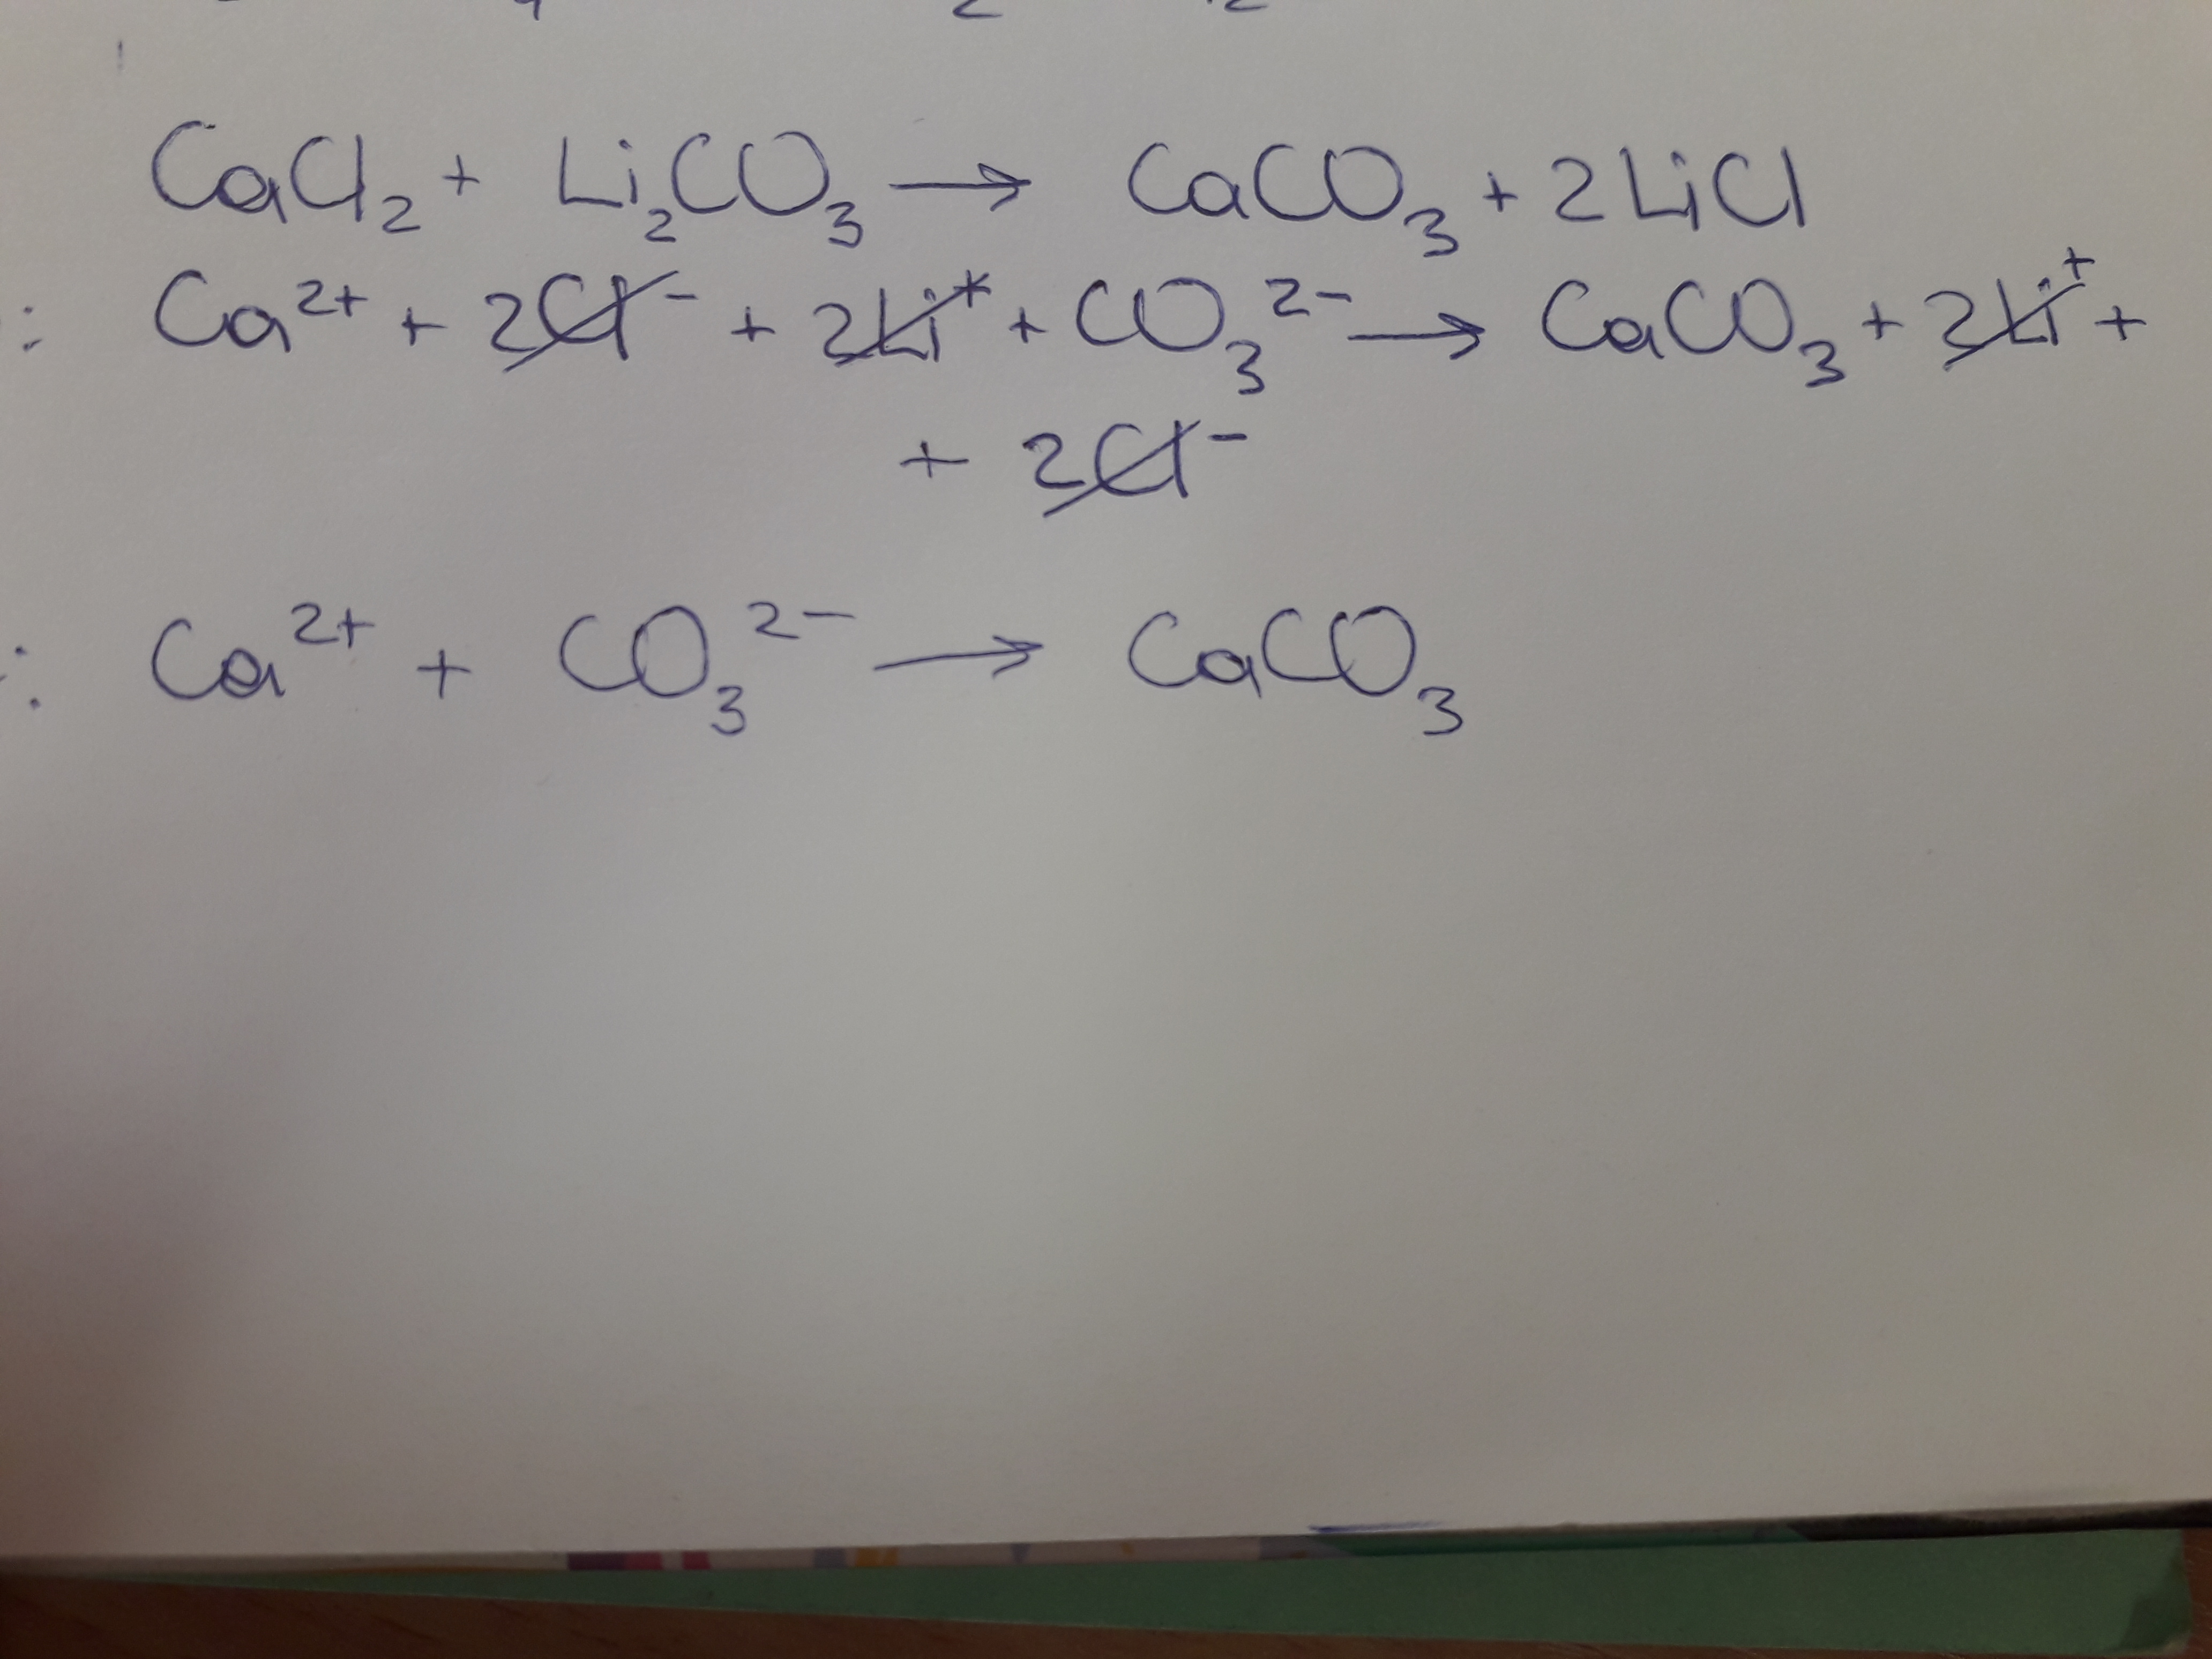 CaCl₂ + Li₂CO₃ → CaCO₃ + 2LiCl
: Ca²⁺ + 2Cl⁻ + 2Li⁺ + CO₃²⁻ → CaCO₃ + 2Li⁺ +
+ 2Cl⁻
: Ca²⁺ + CO₃²⁻ → CaCO₃